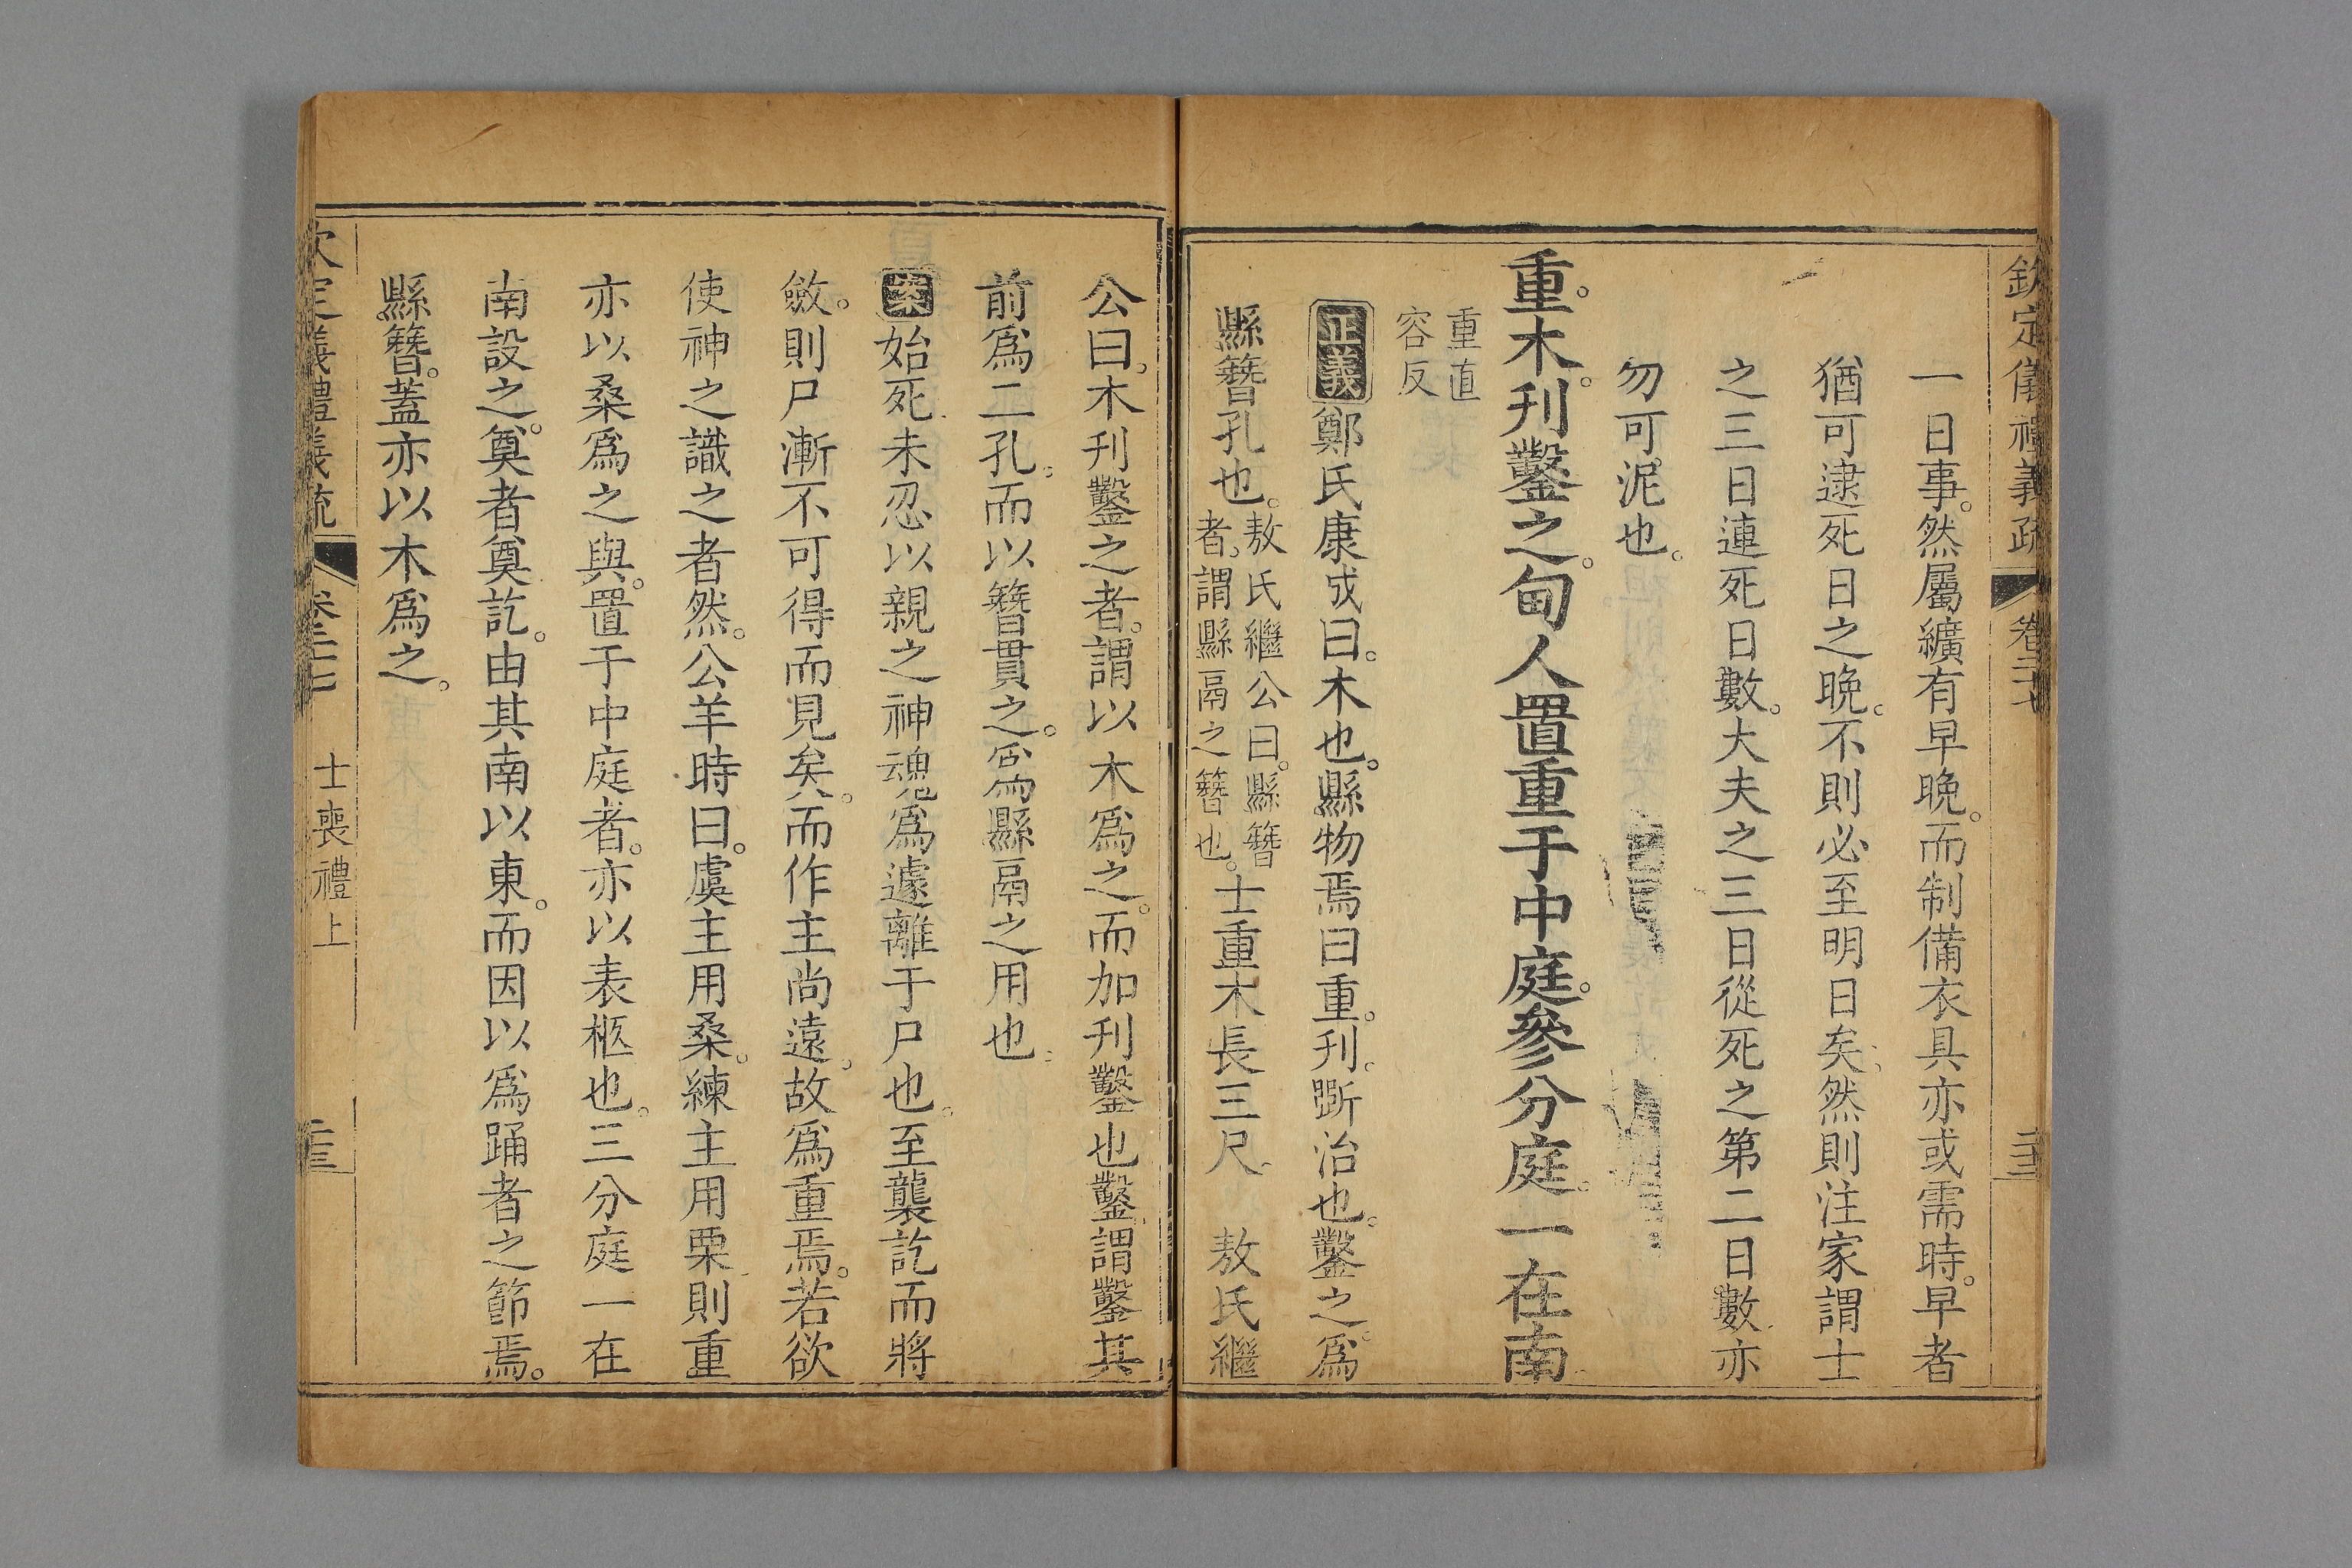 欽定儀禮義疏 卷二十七
一日事。然屬纊有早晚。而制備衣具亦或需時。早者
猶可逮死日之晚。不則必至明日矣。然則注家謂士
之三日連死日數。大夫之三日從死之第二日數。亦
勿可泥也。
重。木。刊鑿之。甸人置重于中庭。參分庭。一在南
重直
容反
正義鄭氏康成曰。木也。縣物焉曰重。刊。斲治也。鑿之。爲
縣簪孔也。
敖氏繼公曰。縣簪
者。謂縣鬲之簪也。
士重木長三尺。 敖氏繼
公曰。木刊鑿之者。謂以木爲之。而加刊鑿也鑿。謂鑿其
前爲二孔。而以簪貫之。爲縣鬲之用也。
案始死。未忍以親之神魂爲遽離于尸也。至襲訖而將
斂。則尸漸不可得而見矣。而作主尚遠。故爲重焉。若欲
使神之識之者然。公羊時曰。虞主用桑。練主用栗則重
亦以桑爲之與。置于中庭者。亦以表柩也。三分庭一在
南設之。奠者奠訖。由其南以東。而因以爲踊者之節焉。
縣簪。蓋亦以木爲之。
欽定儀禮義疏 卷二十七 士喪禮上